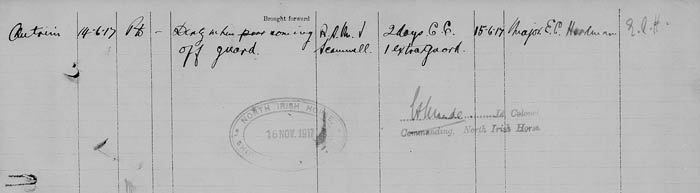 Brought forward
Antrim 14-6-17 Pte - Dirty when parading R.S.M. J 2 days C.C. 15-6-17 Major E.C. Herdman E.C.H.
off guard. 1 extra guard.
NORTH IRISH HORSE
16 NOV. 1917
Lt. Colonel
Commanding, North Irish Horse